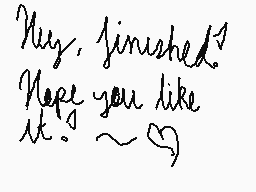 Hey, finished!
Hope you like
it! ~ ♡